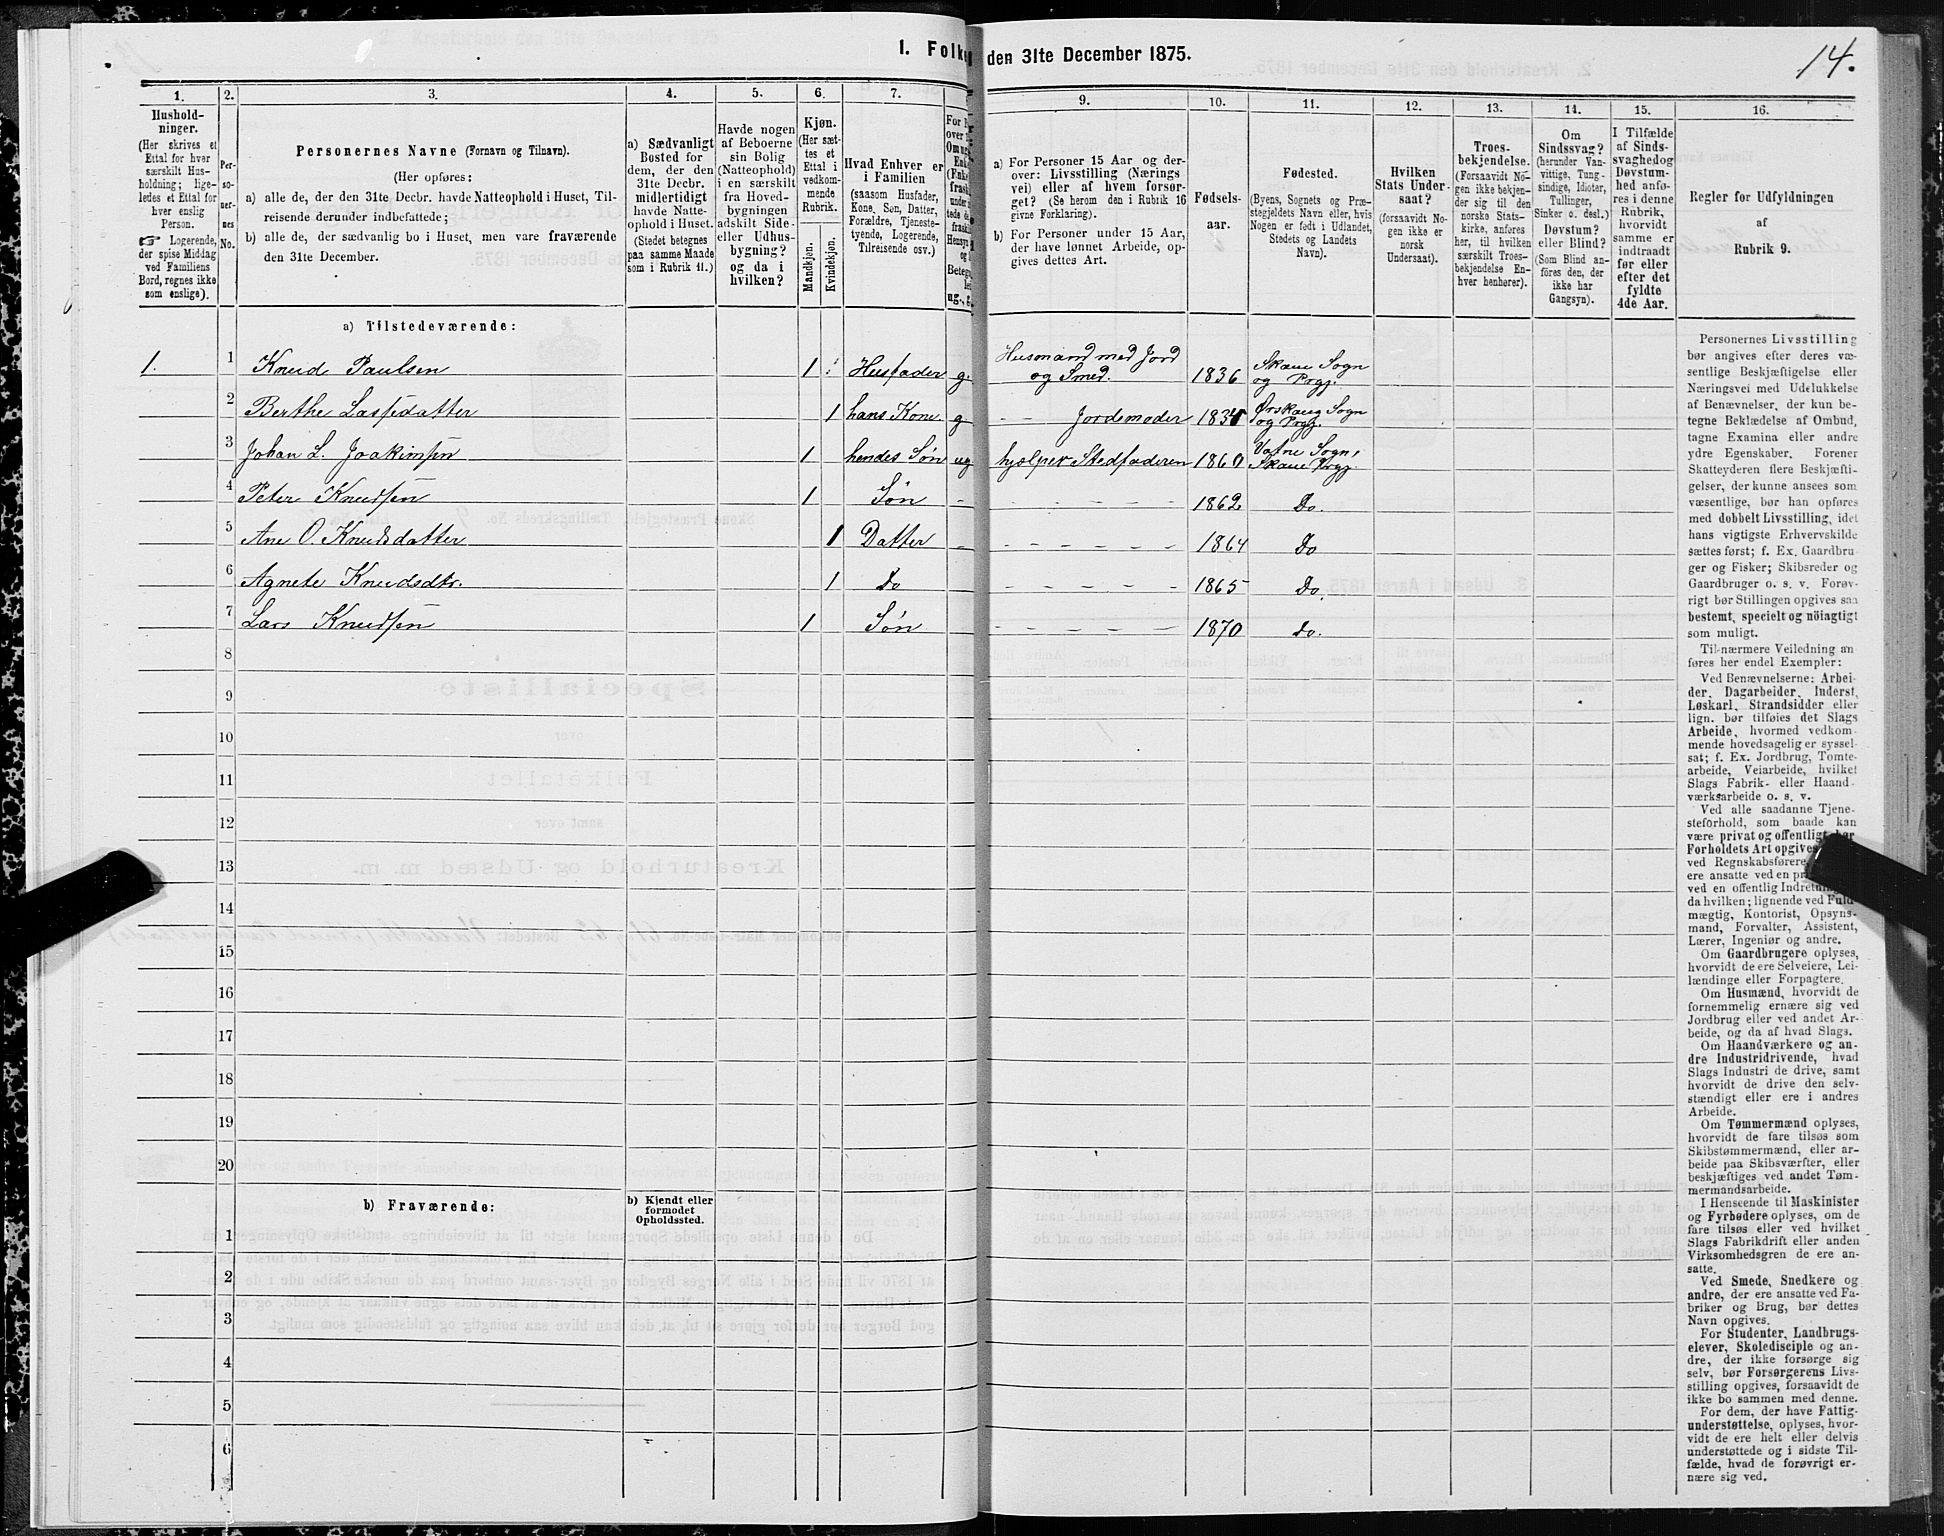 1. Folke den 31te December 1875.
14.
1.
2.
3.
4.
5.
6.
7.
9.
10.
11.
12.
13.
14.
15.
16.
Hushold-
ninger.
(Her skrives et
Ettal for hver
særskilt Hus-
holdning; lige-
ledes et Ettal for
hver enslig
Person.
☞ Logerende,
der spise Middag
ved Familiens
Bord, regnes ikke
som enslige).
Per-
so-
ner-
nes
No.
Personernes Navne (Fornavn og Tilnavn).
(Her opføres:
a) alle de, der den 31te Decbr. havde Natteophold i Huset, Til-
reisende derunder indbefattede;
b) alle de, der sædvanlig bo i Huset, men vare fraværende
den 31te December.
a) Sædvanligt
Bosted for
dem, der den
31te Decbr.
midlertidigt
havde Natte-
ophold i Huset.
(Stedet betegnes
paa samme Maade
som i Rubrik 11.)
Havde nogen
af Beboerne
sin Bolig
(Natteophold)
i en særskilt
fra Hoved-
bygningen
adskilt Side-
eller Udhus-
bygning?
og da i
hvilken?
Kjøn.
(Her sæt-
tes et
Ettal i
vedkom-
mende
Rubrik.
Mandkjøn.
Kvindekjøn.
Hvad Enhver er
i Familien
(saasom Husfader,
Kone, Søn, Datter,
Forældre, Tjeneste-
tyende, Logerende,
Tilreisende osv.)
a) For Personer 15 Aar og der-
over: Livsstilling (Nærings
vei) eller af hvem forsør-
get? (Se herom den i Rubrik 16
givne Forklaring).
b) For Personer under 15 Aar,
der have lønnet Arbeide, op-
gives dettes Art.
Fødsels-
aar.
Fødested.
(Byens, Sognets og Præ-
stegjeldets Navn eller, hvis
Nogen er født i Udlandet,
Stedets og Landets
Navn).
Hvilken
Stats Under-
saat?
(forsaavidt No-
gen ikke er
norsk
Undersaat).
Troes-
bekjendelse.
(Forsaavidt No-
gen ikke bekjen-
der sig til den
norske Stats-
kirke, anføres
her, til hvilken
særskilt Troes-
bekjendelse En-
hver henhører).
Om
Sindssvag?
(herunder Van-
vittige, Tung-
sindige, Idioter,
Tullinger,
Sinker o. desl.)
Døvstum?
eller Blind?
(Som Blind an-
føres den, der
ikke har
Gangsyn).
I Tilfælde
af Sinds-
svaghedog
Døvstum-
hed anfø-
res i denne
Rubrik,
hvorvidt
samme er
indtraadt
før eller
efter det
fyldte
4de Aar.
Regler for Udfyldningen
af
Rubrik 9.
a) Tilstedeværende:
1. 1 Knud Paulsen 1 Husfader g. Husmand med Jord og Smed. 1836 Skaue Sogn og Prgj.
2 Berthe Lassedatter 1 hans Kone g — Jordemoder Ørskaug Sogn og Prgj.
3 Johan L. Joakimsen 1 hendes Søn ug hjælper Stedfaderen 1860 Vatne Sogn, Skaue Prgj.
4 Peter Knudsen 1 Søn - - - - - - 1862 Do.
5 Ane O. Knudsdatter 1 Datter - - - - - - 1864 Do
6 Agnete Knudsdtr. 1 Do - - - - - 1865 Do.
7 Lars Knudsen 1 Søn - - - - - 1870 Do.
8
9
10
11
12
13
14
15
16
17
18
19
20
b) Fraværende:
b) Kjendt eller
formodet
Opholdssted.
1
2
3
4
5
6
Personernes Livsstilling
bør angives efter deres væ-
sentlige Beskjæftigelse eller
Næringsvei med Udelukkelse
af Benævnelser, der kun be-
tegne Beklædelse af Ombud,
tagne Examina eller andre
ydre Egenskaber. Forener
Skatteyderen flere Beskjæfti-
gelser, der kunne ansees som
væsentlige, bør han opføres
med dobbelt Livsstilling, idet
hans vigtigste Erhvervskilde
sættes først; f. Ex. Gaardbru-
ger og Fisker; Skibsreder og
Gaardbruger o. s. v. Forøv-
rigt bør Stillingen opgives saa
bestemt, specielt og nöiagtigt
som muligt.
Til nærmere Veiledning an
føres her endel Exempler:
Ved Benævnelserne: Arbei-
der, Dagarbeider, Inderst,
Løskarl, Strandsidder eller
lign. bør tilføies det Slags
Arbeide, hvormed vedkom-
mende hovedsagelig er syssel-
sat; f. Ex. Jordbrug, Tomte-
arbeide, Veiarbeide, hvilket
Slags Fabrik- eller Haand-
værksarbeide o. s. v.
Ved alle saadanne Tjene-
steforhold, som baade kan
være privat og offentligt, bør
Forholdets Art opgives
ved Regnskabsførere
ere ansatte ved en pr
ved en offentlig Indretn
da hvilken; lignende ved Fuld-
mægtig, Kontorist, Opsyns-
mand, Forvalter, Assistent,
Lærer, Ingeniør og andre.
Om Gaardbrugere oplyses,
hvorvidt de ere Selveiere, Lei-
lændinge eller Forpagtere.
Om Husmænd, hvorvidt de
fornemmelig ernære sig ved
Jordbrug eller ved andet Ar-
beide, og da af hvad Slags.
Om Haandværkere og an-
dre Industridrivende, hvad
Slags Industri de drive, samt
hvorvidt de drive den selv-
stændigt eller ere i andres
Arbeide.
Om Tømmermænd oplyses,
hvorvidt de fare tilsøs som
Skibstømmermænd, eller ar-
beide paa Skibsværfter, eller
beskjæftiges ved andet Tøm-
mermandsarbeide.
I Henseende til Maskinister
og Fyrbødere oplyses, om de
fare tilsøs eller ved hvilket
Slags Fabrikdrift eller anden
Virksomhedsgren de ere an-
satte.
Ved Smede, Snedkere og
andre, der ere ansatte ved Fa-
briker og Brug, bør dettes
Navn opgives.
For Studenter, Landbrugs-
elever, Skoledisciple og an-
dre, der ikke forsørge sig
selv, bør Forsørgerens Livs-
stilling opgives, forsaavidt de
ikke bo sammen med denne.
For dem, der have Fattig-
understøttelse, oplyses, hvor-
vidt de ere helt eller delvis
understøttede og i sidste Til-
fælde, hvad de forøvrigt er-
nære sig ved.